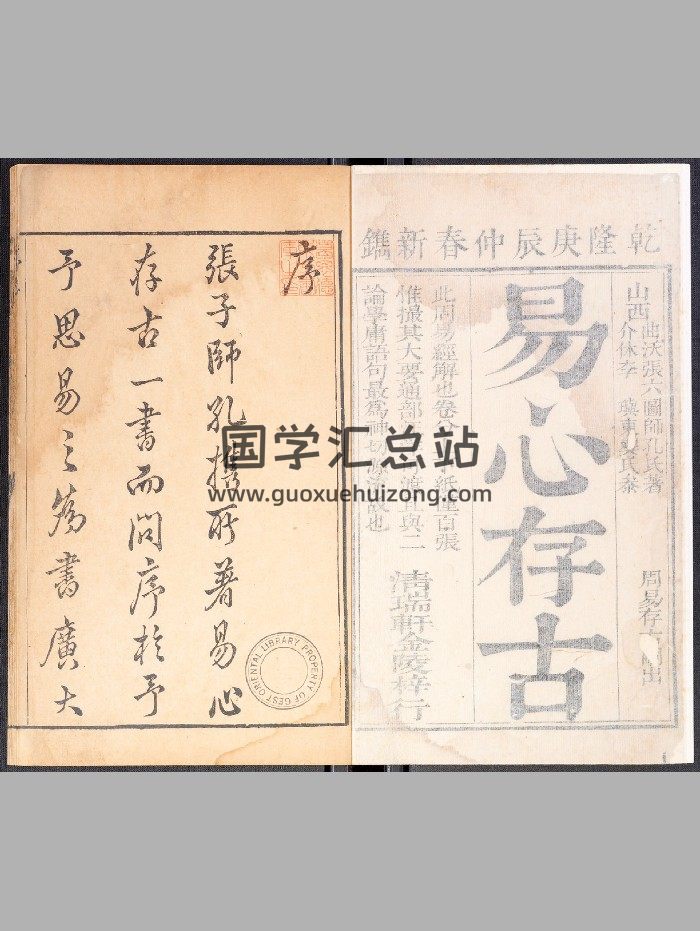 乾隆庚辰仲春新鐫
山西曲沃張六圖師孔氏著
介休李
易心存古
周易存
此周易經解也卷
紙僅百張
惟撮其大要通部
與二
論學庸語句最為神
也
清瑞軒金陵梓行
序
張子師孔攜所著易心
存古一書而問序於予
予思易之為書廣大
国学汇总站
www.guoxuehuizong.com
PROPERTY OF GEST ORIENTAL LIBRARY